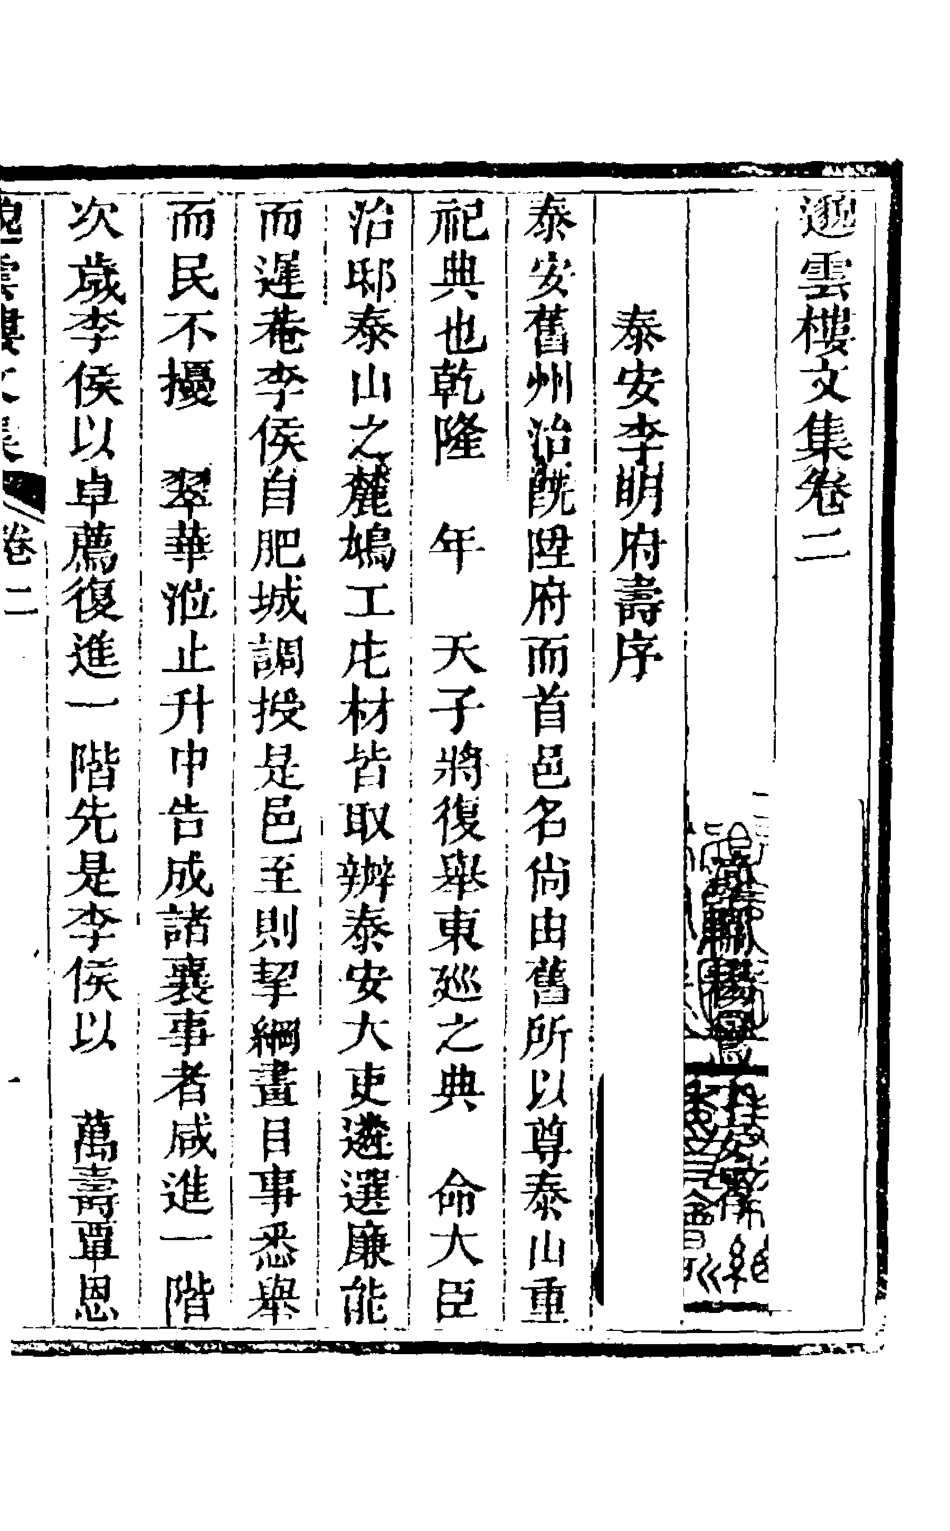 邈雲樓文集卷二
泰安李明府壽序
泰安舊州治旣陞府而首邑名尙由舊所以尊泰山重
祀典也乾隆 年 天子將復舉東廵之典 命大臣
治邸泰山之麓鳩工庀材皆取辦泰安大吏遴選廉能
而遲菴李侯自肥城調授是邑至則挈綱畫目事悉舉
而民不擾 翠華涖止升中告成諸襄事者咸進一階
次歲李侯以卓薦復進一階先是李侯以 萬壽覃恩
邈雲樓文集 卷二 一